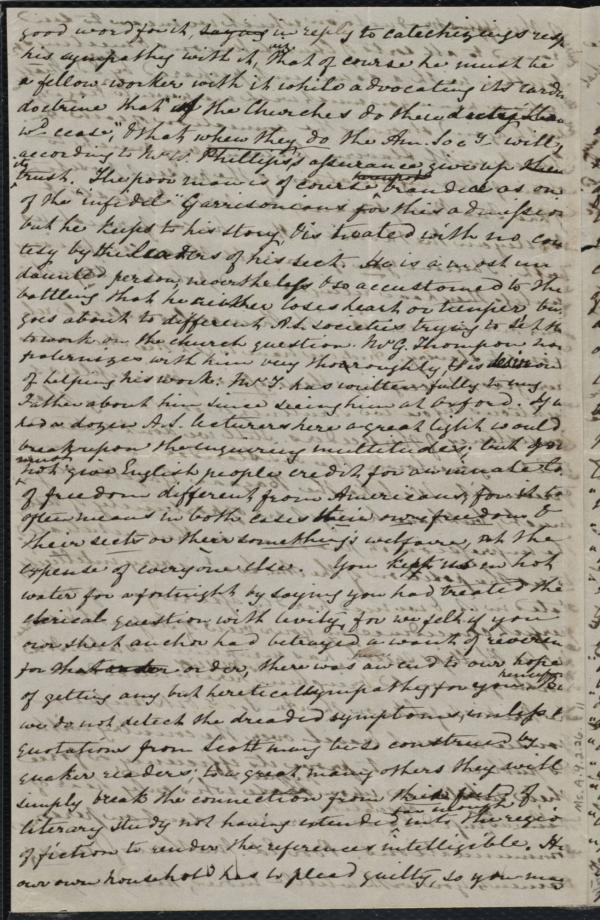 good word for it, saying in reply to catechizings resp
his sympathy with it, that of course he must be
a fellow-worker with it while advocating its cardi
doctrine that "if the Churches do their duty, the
wd cease," & that when they do the Am. Socy. will,
according to Mr W. Phillips's assurance give up their
trust. The poor man is of course branded as one
of the "infidel" Garrisonians for this admission
but he keeps to his story, & is treated with no cour
tesy by the leaders of his sect. He is a most un
daunted person, nevertheless & so accustomed to the
battling that he neither loses heart or temper but
goes about to different A.S. societies trying to set th
to work on the church question. Mr G. Thompson now
fraternizes with him very thoroughly, & is desirous
of helping his work: Mr T. has written fully to my
Father about him since seeing him at Oxford. If u
had a dozen A.S. lecturers here a great light would
break upon the enquiring multitudes; but you
must
not give English people credit for an innate lo
of freedom different from Americans, for it so
often means in both cases their own freedom &
their sects or their something's welfare, at the
expense of everyone else. You kept us in hot
water for a fortnight by saying you had treated the
clerical question with levity, for we felt if you
our sheet anchor had betrayed a want of reveren
for that order, there was an end to our hope
of getting any but heretical sympathy for you.
we do not detect the dreaded symptoms, unless t
quotations from Scott may be so construed by
quaker readers; to a great many others they will
simply break the connection from their
literary study not having extended into the regio
of fiction to render the references intelligible. As
our own household has to plead guilty, so you may
Ms. A.9.2.26